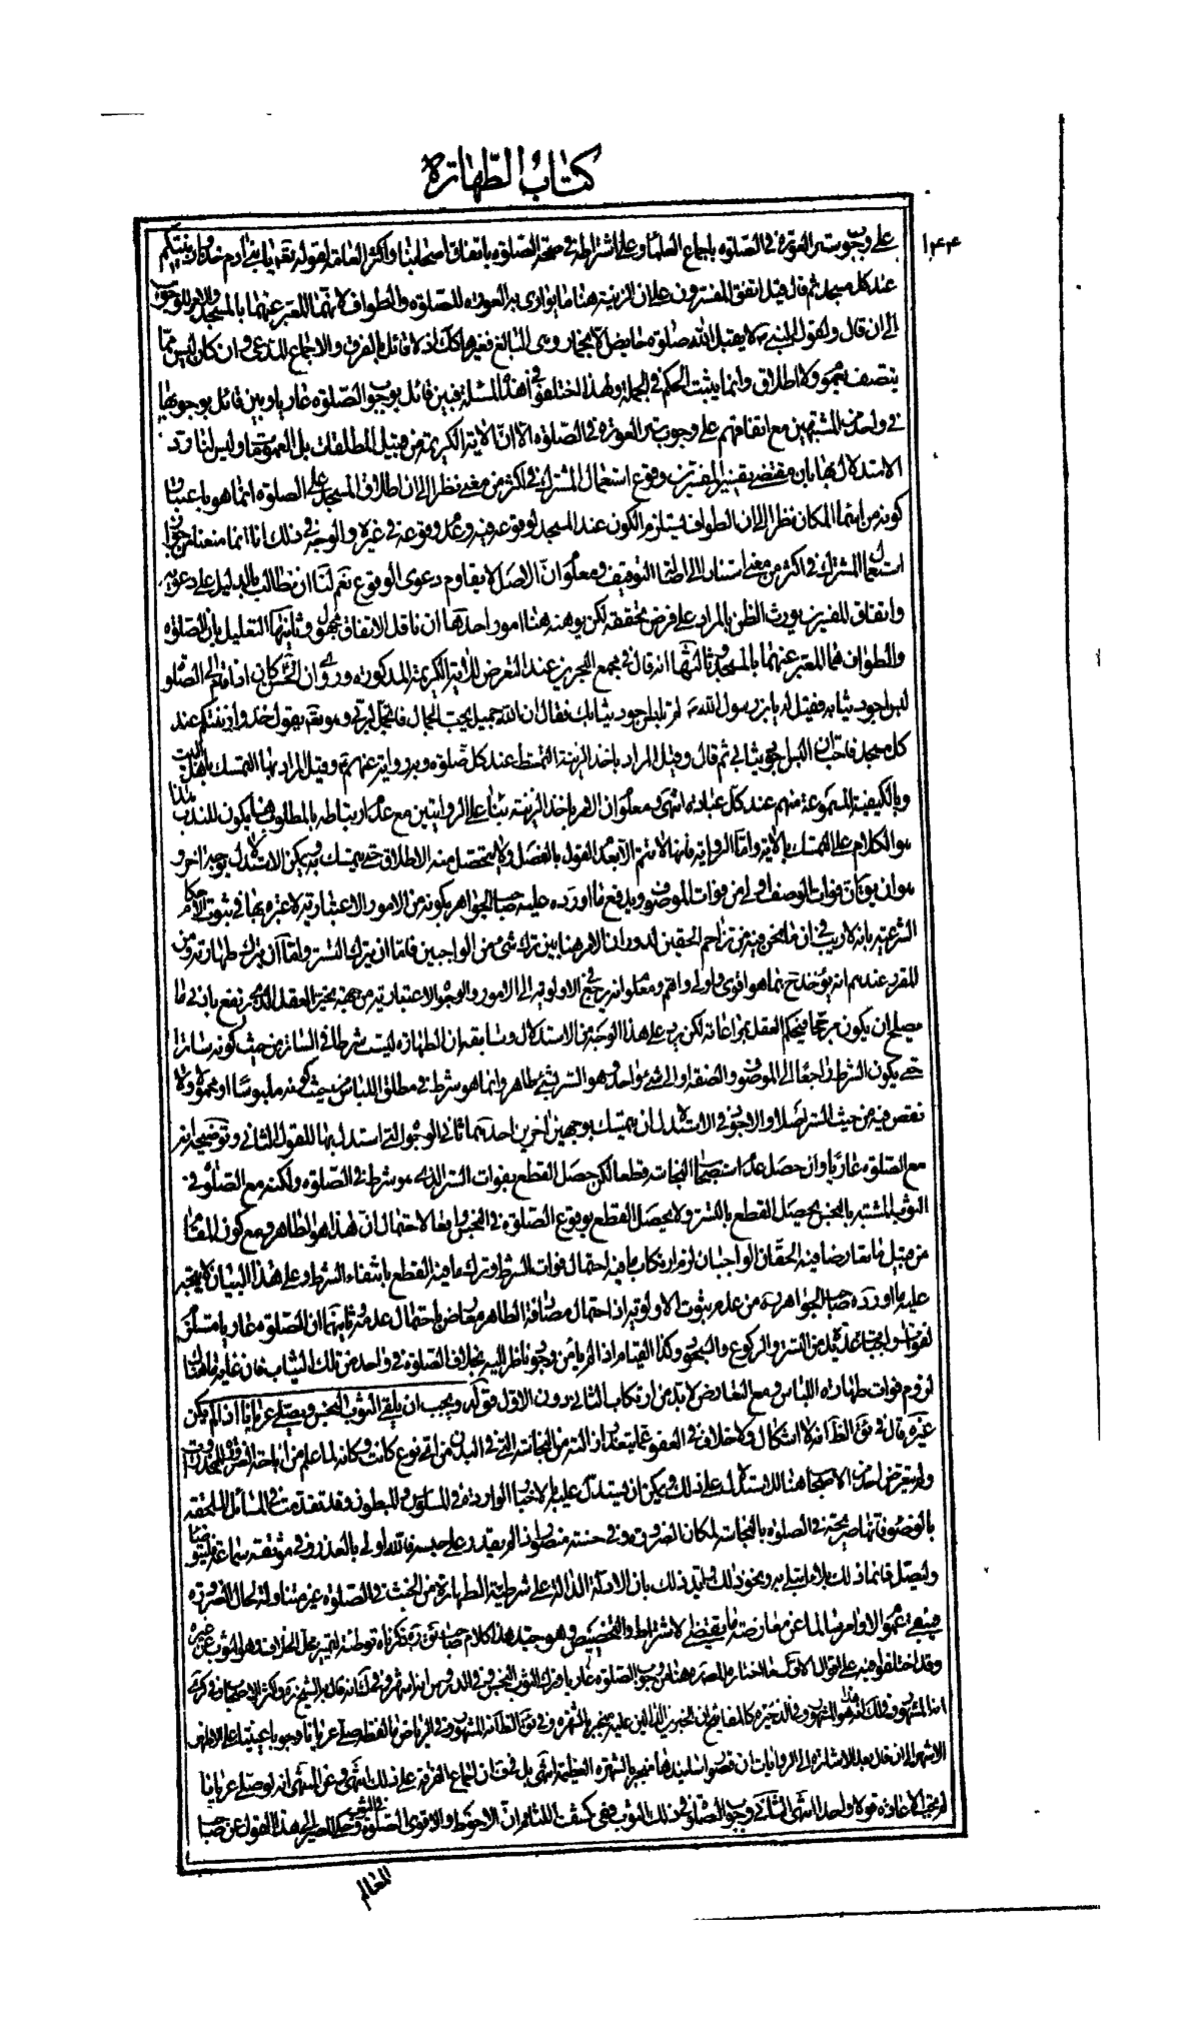 كتاب الطهارة
على وجوب ستر العورة فى الصلوة باجماع العلماء وعلى اشتراطه فى صحة الصلوة باتفاق اصحابنا واكثر العامة لقوله تعالى يا بنى ادم خذوا زينتكم
عند كل مسجد ثم قال قيل اتفق المفسرون على ان الزينة هنا ما يوارى به العورة للصلوة والطواف لانهما المعبر عنهما بالمسجد والامر للوجوب
الى ان قال ولقول النبى ص لا يقبل الله صلوة حائض الا بخمار وهى البالغ فغيرها كك اذ لا قائل بالفرق والاجماع المدعى وان كان ليس مما
يتصف بعموم ولا اطلاق وانما يثبت الحكم فى الجملة ولهذا اختلفوا فى هذه المسئلة فبين قائل بوجوب الصلوة عاريا وبين قائل بوجوبها
فى واحد من المشتبهين مع اتفاقهم على وجوب ستر العورة فى الصلوة الا ان الاية الكريمة من قبيل المطلقات بل العمومات وليس لنا رد
الاستدلال بها بان مقتضى تفسير المفسرين وقوع استعمال المشترك فى اكثر من معنى نظرا الى ان اطلاق المسجد على الصلوة انما هو باعتبار
كونه من اسماء المكان نظرا الى ان الطواف يستلزم الكون عند المسجد لوقوعه فيه وعدم وقوعه فى غيره والوجه فى ذلك انا انما منعنا من جواز
استعمال المشترك فى اكثر من معنى استنادا الى اصالة التوقيف ومعلوم ان الاصل لا يقاوم دعوى الوقوع نعم لنا ان نطالب بالدليل على دعويه
واتفاق المفسرين يورث الظن بالمراد على فرض تحققه لكن يوهنه هنا امور احدها ان ناقل الاتفاق مجهول وثانيها التعليل بان الصلوة
والطواف هما المعبر عنهما بالمسجد وثالثها انه قال فى مجمع البحرين عند التعرض للاية الكريمة المذكورة وروى ان الحسن ع كان اذا قام الى الصلوة
لبس اجود ثيابه فقيل له يابن رسول الله ص لم تلبس اجود ثيابك فقال ان الله جميل يحب الجمال فاتجمل لربى وهو تعالى يقول خذوا زينتكم عند
كل مسجد فاحب ان البس اجود ثيابى ثم قال وقيل المراد باخذ الزينة التمشط عند كل صلوة وبه رواية عنهم ع وقيل المراد بها التمسك باهل البيت
وبالكيفية المسموعة منهم عند كل عبادة انتهى ومعلوم ان الامر باخذ الزينة بناء على الروايتين مع عدم ارتباطه بالمطلوب هنا يكون للندب هذا
هو الكلام على التمسك بالاية واما الرواية فانها لا تتم الا بعدم القول بالفصل ولا يتحصل منه الاطلاق حتى يتمسك به ويمكن الاستدلال بوجه اخر و
هو ان يقال ان فوات الوصف اولى من فوات الموصوف ويدفع ما اورده عليه صاحب الجواهر بكونه من الامور الاعتبارية لا عبرة بها فى ثبوت الاحكام
الشرعية بانه لا ريب فى ان ما نحن فيه من تزاحم الحقين لدوران الامر هنا بين ترك شىء من الواجبين فاما ان يترك الستر واما ان يترك طهارته ومن
المقرر عندهم انه يؤخذ ح بما هو اقوى واولى واهم ومعلوم انه يرجع فى الاولوية الى الامور والوجوه الاعتبارية من جهة
يصلح ان يكون مرجحا فيحكم العقل بمراعاته لكن يرد على هذا الوجه من الاستدلال وسابقه ان الطهارة ليست شرطا فى الساتر من حيث كونه ساترا
حتى يكون الشرط راجعا الى الموصوف والصفة او الى شىء واحد وهو الستر بشىء طاهر وانما هو شرط فى مطلق اللباس من حيث كونه ملبوسا او محمولا ولا
نقص فيه من حيث الستر اصلا والاجود فى الاستدلال ان يتمسك بوجهين اخرين احدهما ثانى الوجوه التى استدل بها للقول الثانى وتوضيحه انه
مع الصلوة عاريا وان حصل عدم استصحاب النجاسة قطعا لكن حصل القطع بفوات الستر الذى هو شرط فى الصلوة ولكنه مع الصلوة فى
الثوب المشتبه بالنجس يحصل القطع بالستر ولا يحصل القطع بوقوع الصلوة فى النجس واقعا لاحتمال ان هذا هو الطاهر ومع كون المقام
من قبيل ما تعارضا فيه الحقان الواجبان لزم ارتكاب ما فيه احتمال فوات الشرط وترك ما فيه القطع بانتفاء الشرط وعلى هذا البيان لا يتجه
عليه ما اورده صاحب الجواهر ره من عدم ثبوت الاولوية اذ احتمال مصادفة الطاهر معارض باحتمال عدمه وثانيهما ان الصلوة عاريا مستلزم
لفوات واجبات عديدة من الستر والركوع والسجود وكذا القيام اذا لم يأمن وجود ناظر اليه بخلاف الصلوة فى واحد من تلك الثياب فان غاية ما هناك
لزوم فوات طهارة اللباس ومع التعارض لا بد من ارتكاب الثانى دون الاول قوله ويجب ان يلقى الثوب النجس ويصلى عريانا اذا لم يكن
غيره قال فى الظاهر انه لا اشكال ولا خلاف فى العفو عما يتعذر ازالته من النجاسة التى فى البدن من اى نوع كانت وكانه لما علم من اباحة الضرورة للمحذورات
ولم يتعرض احد من الاصحاب هنا للاستدلال على ذلك ويمكن ان يستدل عليه بالاخبار الواردة فى السلس والمبطون وقد تقدمت فى المسائل الملحقة
بالوضوء فانها صريحة فى الصلوة بالنجاسة لمكان الضرورة وفى حسنة منصور اذا لم يقدر على حبسه فالله اولى بالعذر وفى موثقة سماعة فليتوضأ
وليصل فانما ذلك بلاء ابتلى به ونحو ذلك ويؤيد ذلك بان الادلة الدالة على شرطية الطهارة من الخبث فى الصلوة غير متناولة لحال الضرورة
فيبقى عموم الاوامر سالما عن معارضة ما يقتضى الاشتراط والتخصيص وهو جيد هذا كلام صاحب ئق ره ذكرناه توطئة لتميز محل الخلاف وهو الثوب عن غيره
وقد اختلفوا فيه على اقوال الاول ما اختاره المصنف ره هنا من وجوب الصلوة عاريا وترك الثوب النجس وفى الدروس انه اشهر
انه المشهور وفى لك انه هو المشهور وفى الذخيرة كالمفاتيح ان الخبرين الدالين عليه منجبر بالشهرة وفى الظاهر انه المشهور وفى الرياض بالفظه صلى عريانا وجوبا عينيا على الاظهر
الاشهر الى ان قال بعد الاشارة الى الروايات ان قصور اسانيدها منجبر بالشهرة العظيمة انتهى بل فى ف ان اجماع الفرقة على ذلك انتهى وعن المنتهى انه لو صلى عريانا
لم يجب الاعادة قولا واحدا انتهى الثانى وجوب الصلوة فى ذلك الثوب ففى كشف اللثام ان الاحوط والاقوى الصلوة فى الثوب وحكى المصير الى هذا القول عن صاحب
المعالم